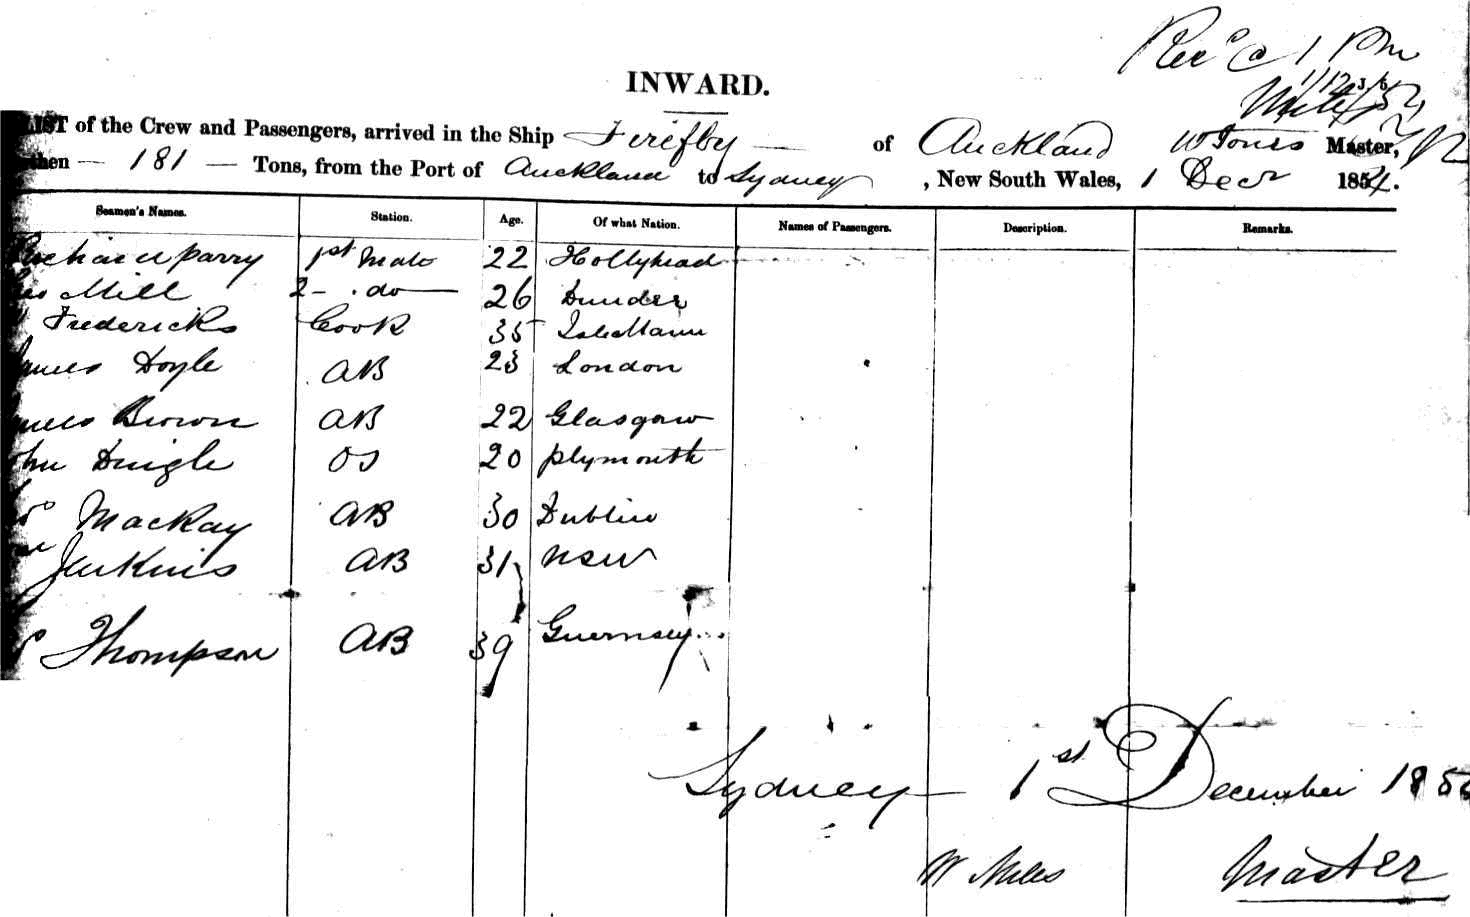 Rec'd @ 1 Pm
1/12/54
INWARD.
LIST of the Crew and Passengers, arrived in the Ship Firefly of Auckland W Jones Master,
Burthen 181 Tons, from the Port of Auckland to Sydney, New South Wales, 1 Decr 1854.
Seamen's Names. Station. Age. Of what Nation. Names of Passengers. Description. Remarks.
Parry 1st Mate 22 Hollyhead
Mill 2 - do 26 Dundee
Fredericks Cook 35 Isle Mann
James Doyle AB 23 London
James Brown AB 22 Glasgow
John Dingle OS 20 Plymouth
Mackay AB 30 Dublin
Jenkins AB 31 NSW
Thompson AB 39 Guernsey
Sydney 1st December 185
W Miles Master